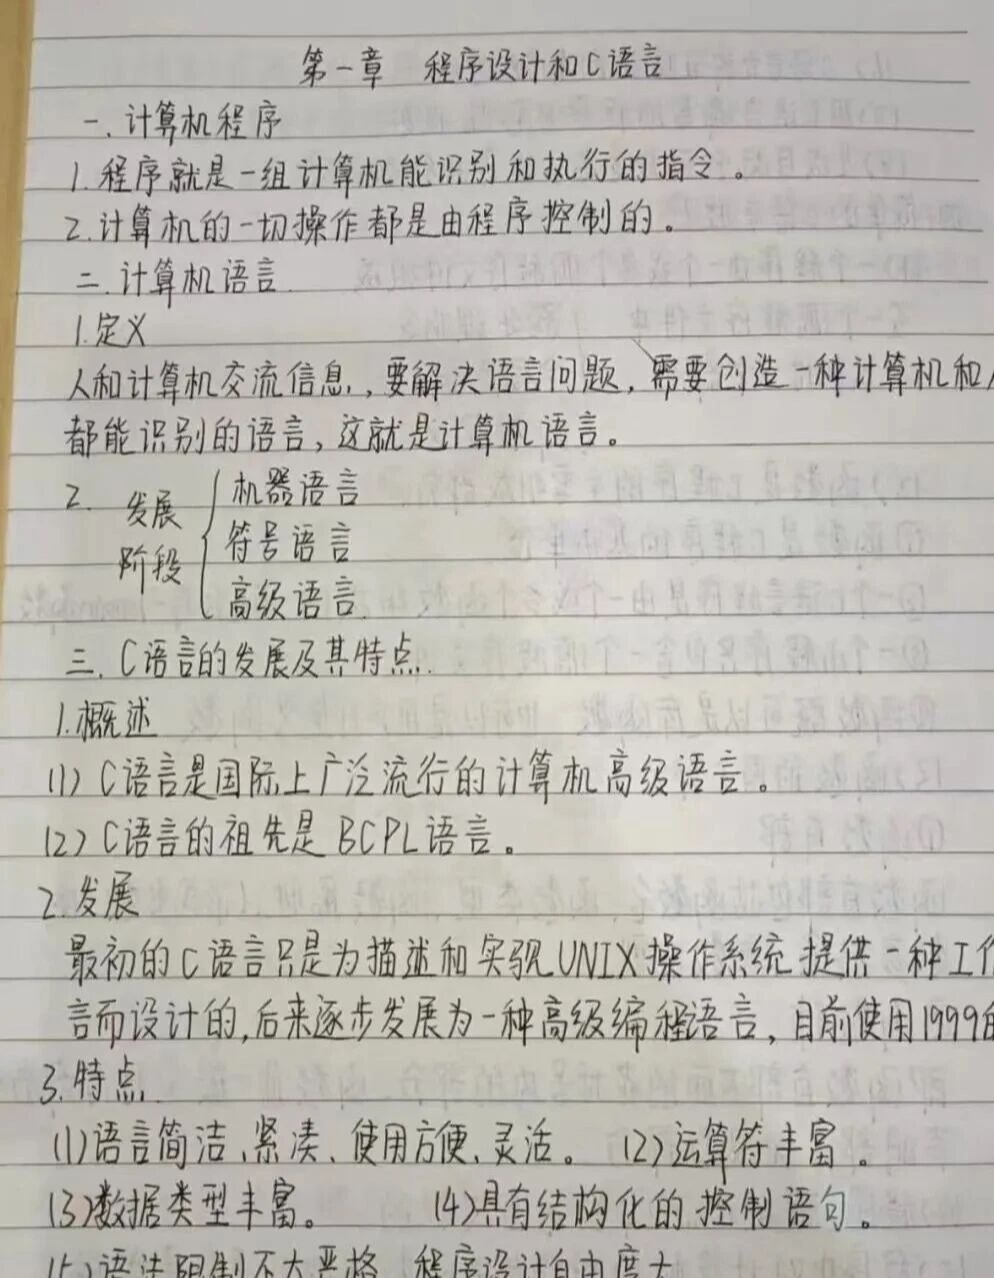 第一章 程序设计和C语言
一.计算机程序
1.程序就是一组计算机能识别和执行的指令。
2.计算机的一切操作都是由程序控制的。
二.计算机语言.
1.定义
人和计算机交流信息,要解决语言问题,需要创造一种计算机和人
都能识别的语言,这就是计算机语言。
2. 发展阶段
机器语言
符号语言
高级语言
三.C语言的发展及其特点.
1.概述
(1) C语言是国际上广泛流行的计算机高级语言。
(2) C语言的祖先是BCPL语言。
2.发展
最初的C语言只是为描述和实现UNIX操作系统提供一种工作
言而设计的,后来逐步发展为一种高级编程语言,目前使用1999的
3.特点.
(1)语言简洁、紧凑、使用方便、灵活。 (2)运算符丰富。
(3)数据类型丰富。 (4)具有结构化的控制语句。
(5)语法限制不太严格,程序设计自由度大